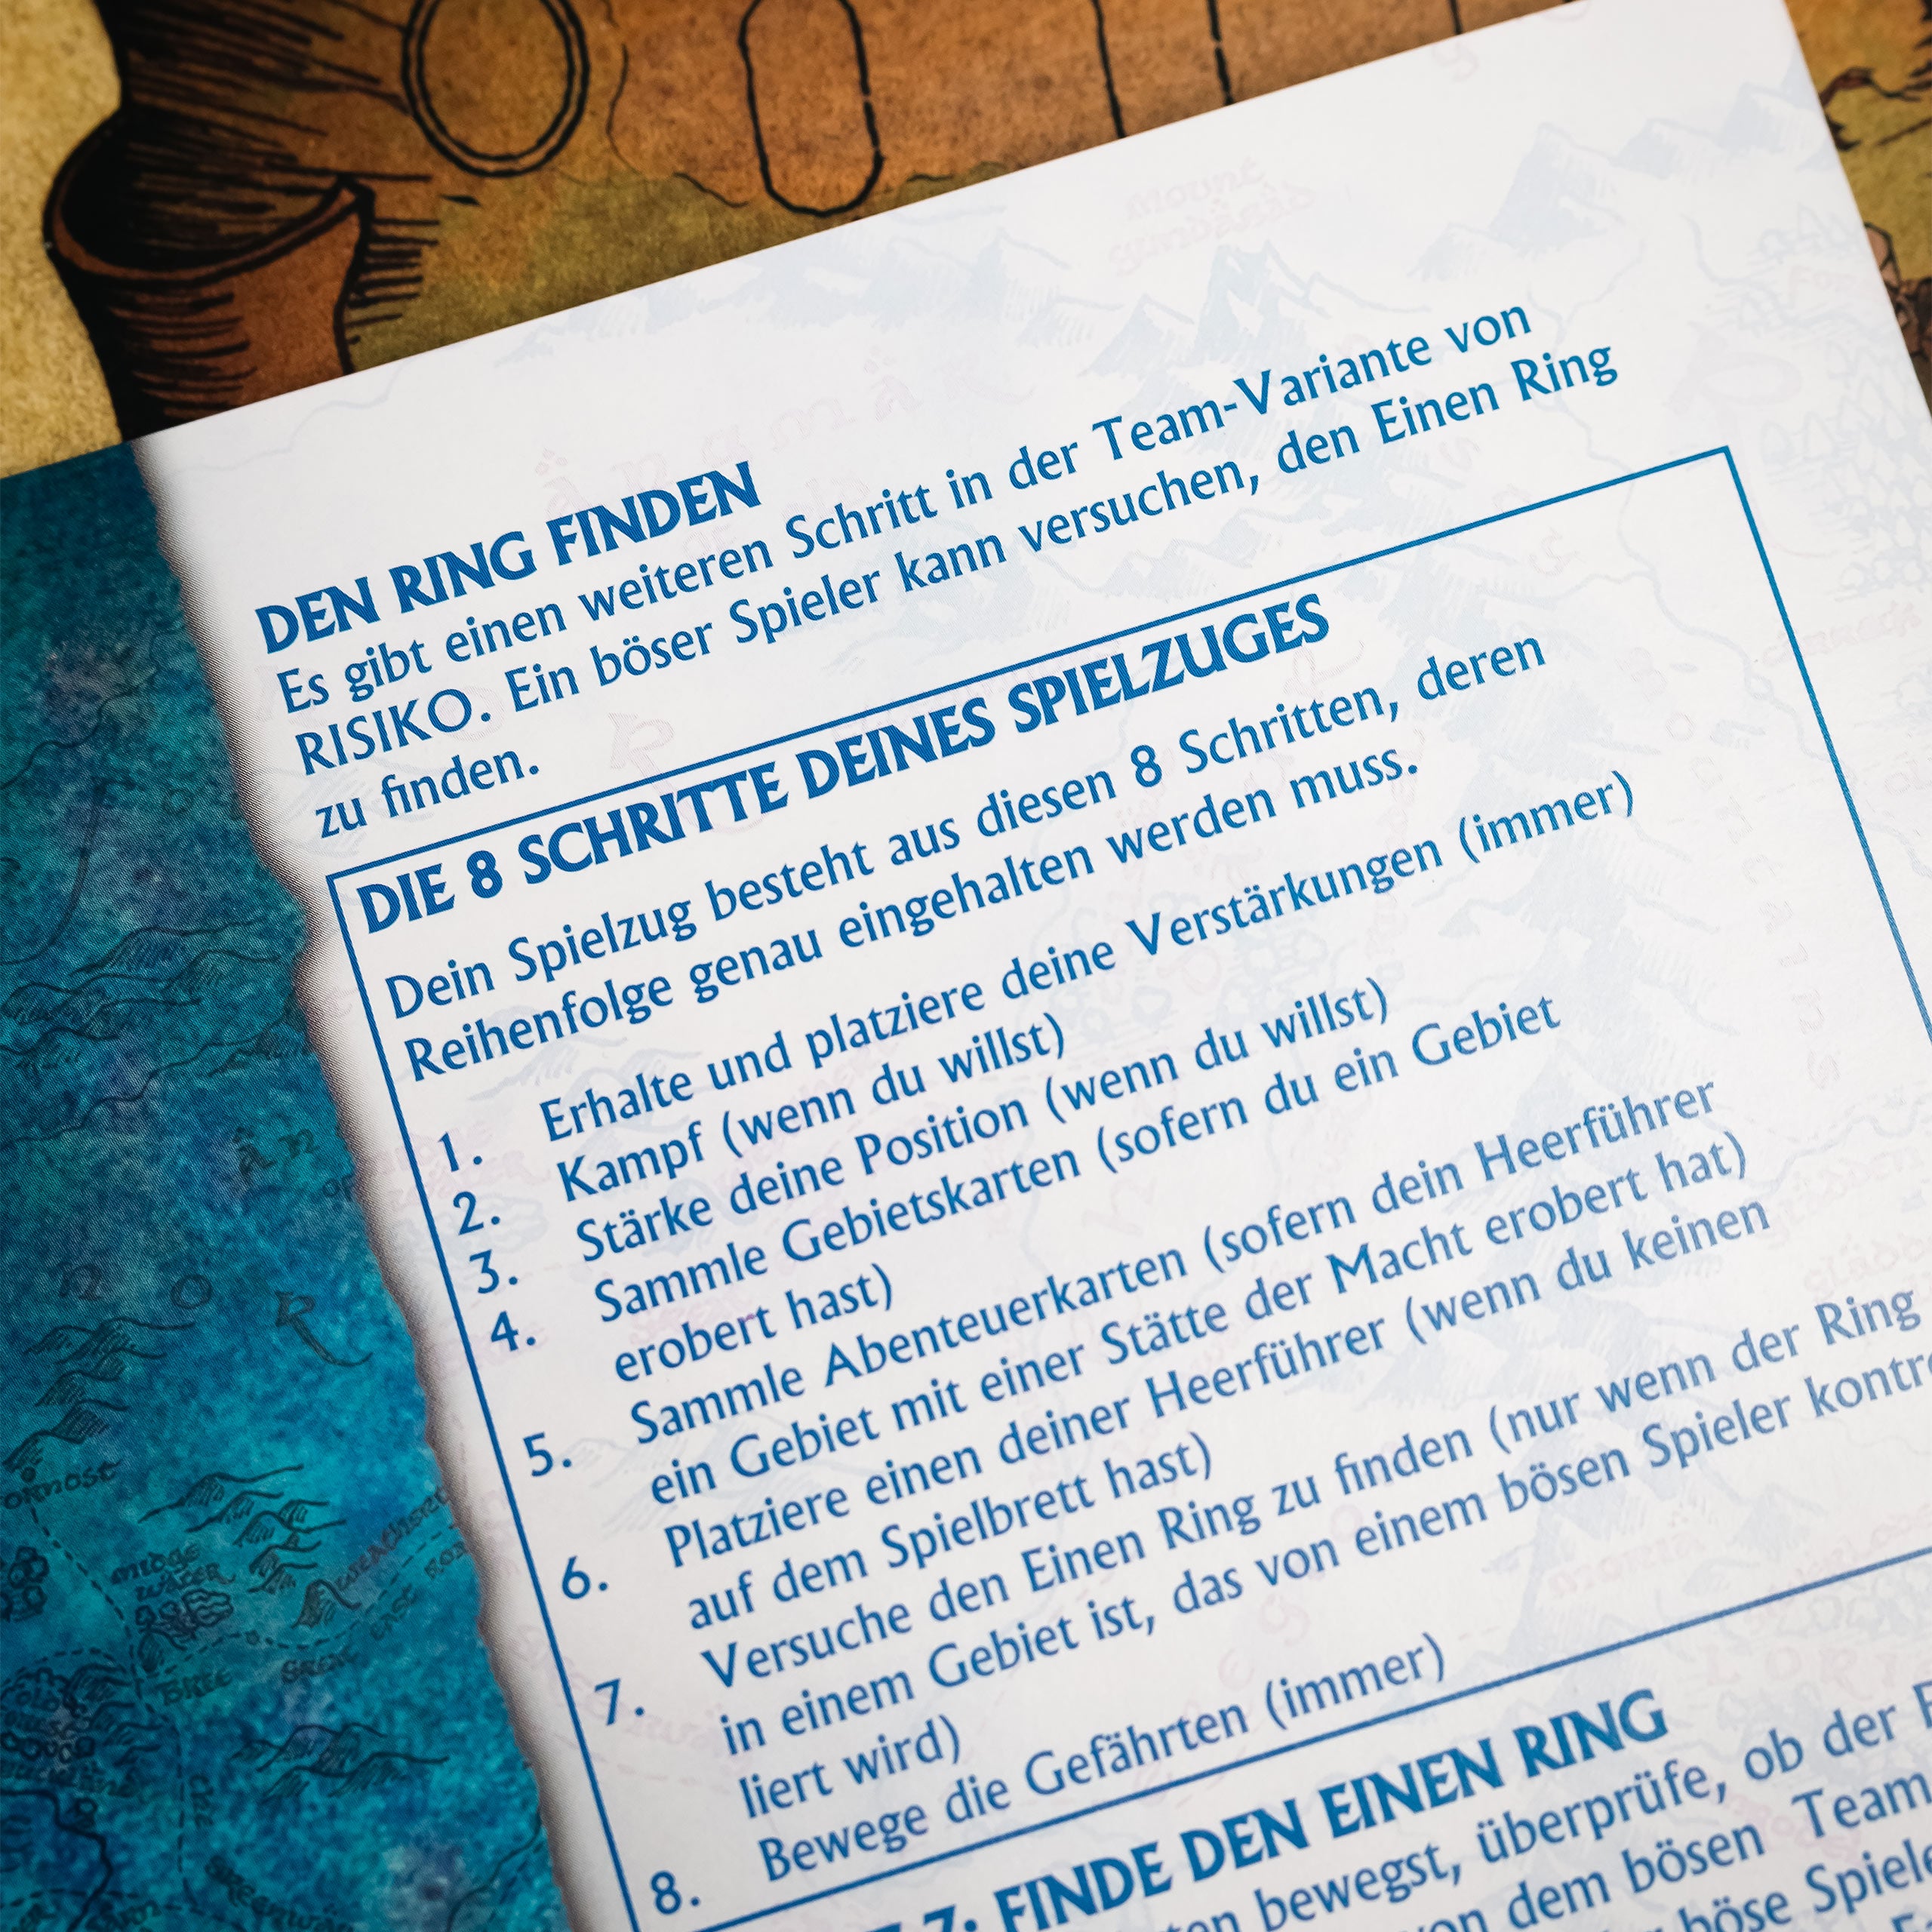 DEN RING FINDEN
Es gibt einen weiteren Schritt in der Team-Variante von
RISIKO. Ein böser Spieler kann versuchen, den Einen Ring
zu finden.
DIE 8 SCHRITTE DEINES SPIELZUGES
Dein Spielzug besteht aus diesen 8 Schritten, deren
Reihenfolge genau eingehalten werden muss.
1. Erhalte und platziere deine Verstärkungen (immer)
2. Kampf (wenn du willst)
3. Stärke deine Position (wenn du willst)
4. Sammle Gebietskarten (sofern du ein Gebiet
erobert hast)
5. Sammle Abenteuerkarten (sofern dein Heerführer
ein Gebiet mit einer Stätte der Macht erobert hat)
6. Platziere einen deiner Heerführer (wenn du keinen
auf dem Spielbrett hast)
7. Versuche den Einen Ring zu finden (nur wenn der Ring
in einem Gebiet ist, das von einem bösen Spieler kontro
liert wird)
8. Bewege die Gefährten (immer)
7: FINDE DEN EINEN RING
bewegst, überprüfe, ob der
dem bösen Team
böse Spiele
BREE